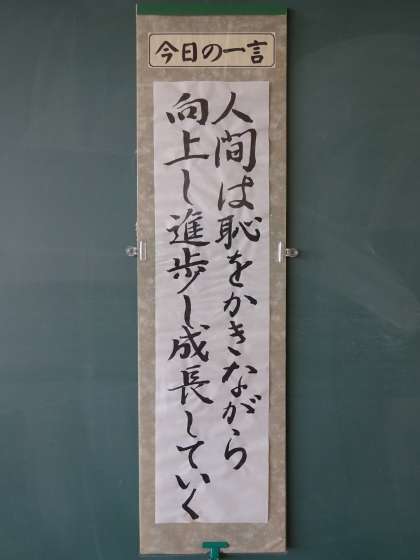 今日の一言
人間は恥をかきながら
向上し進歩し成長していく